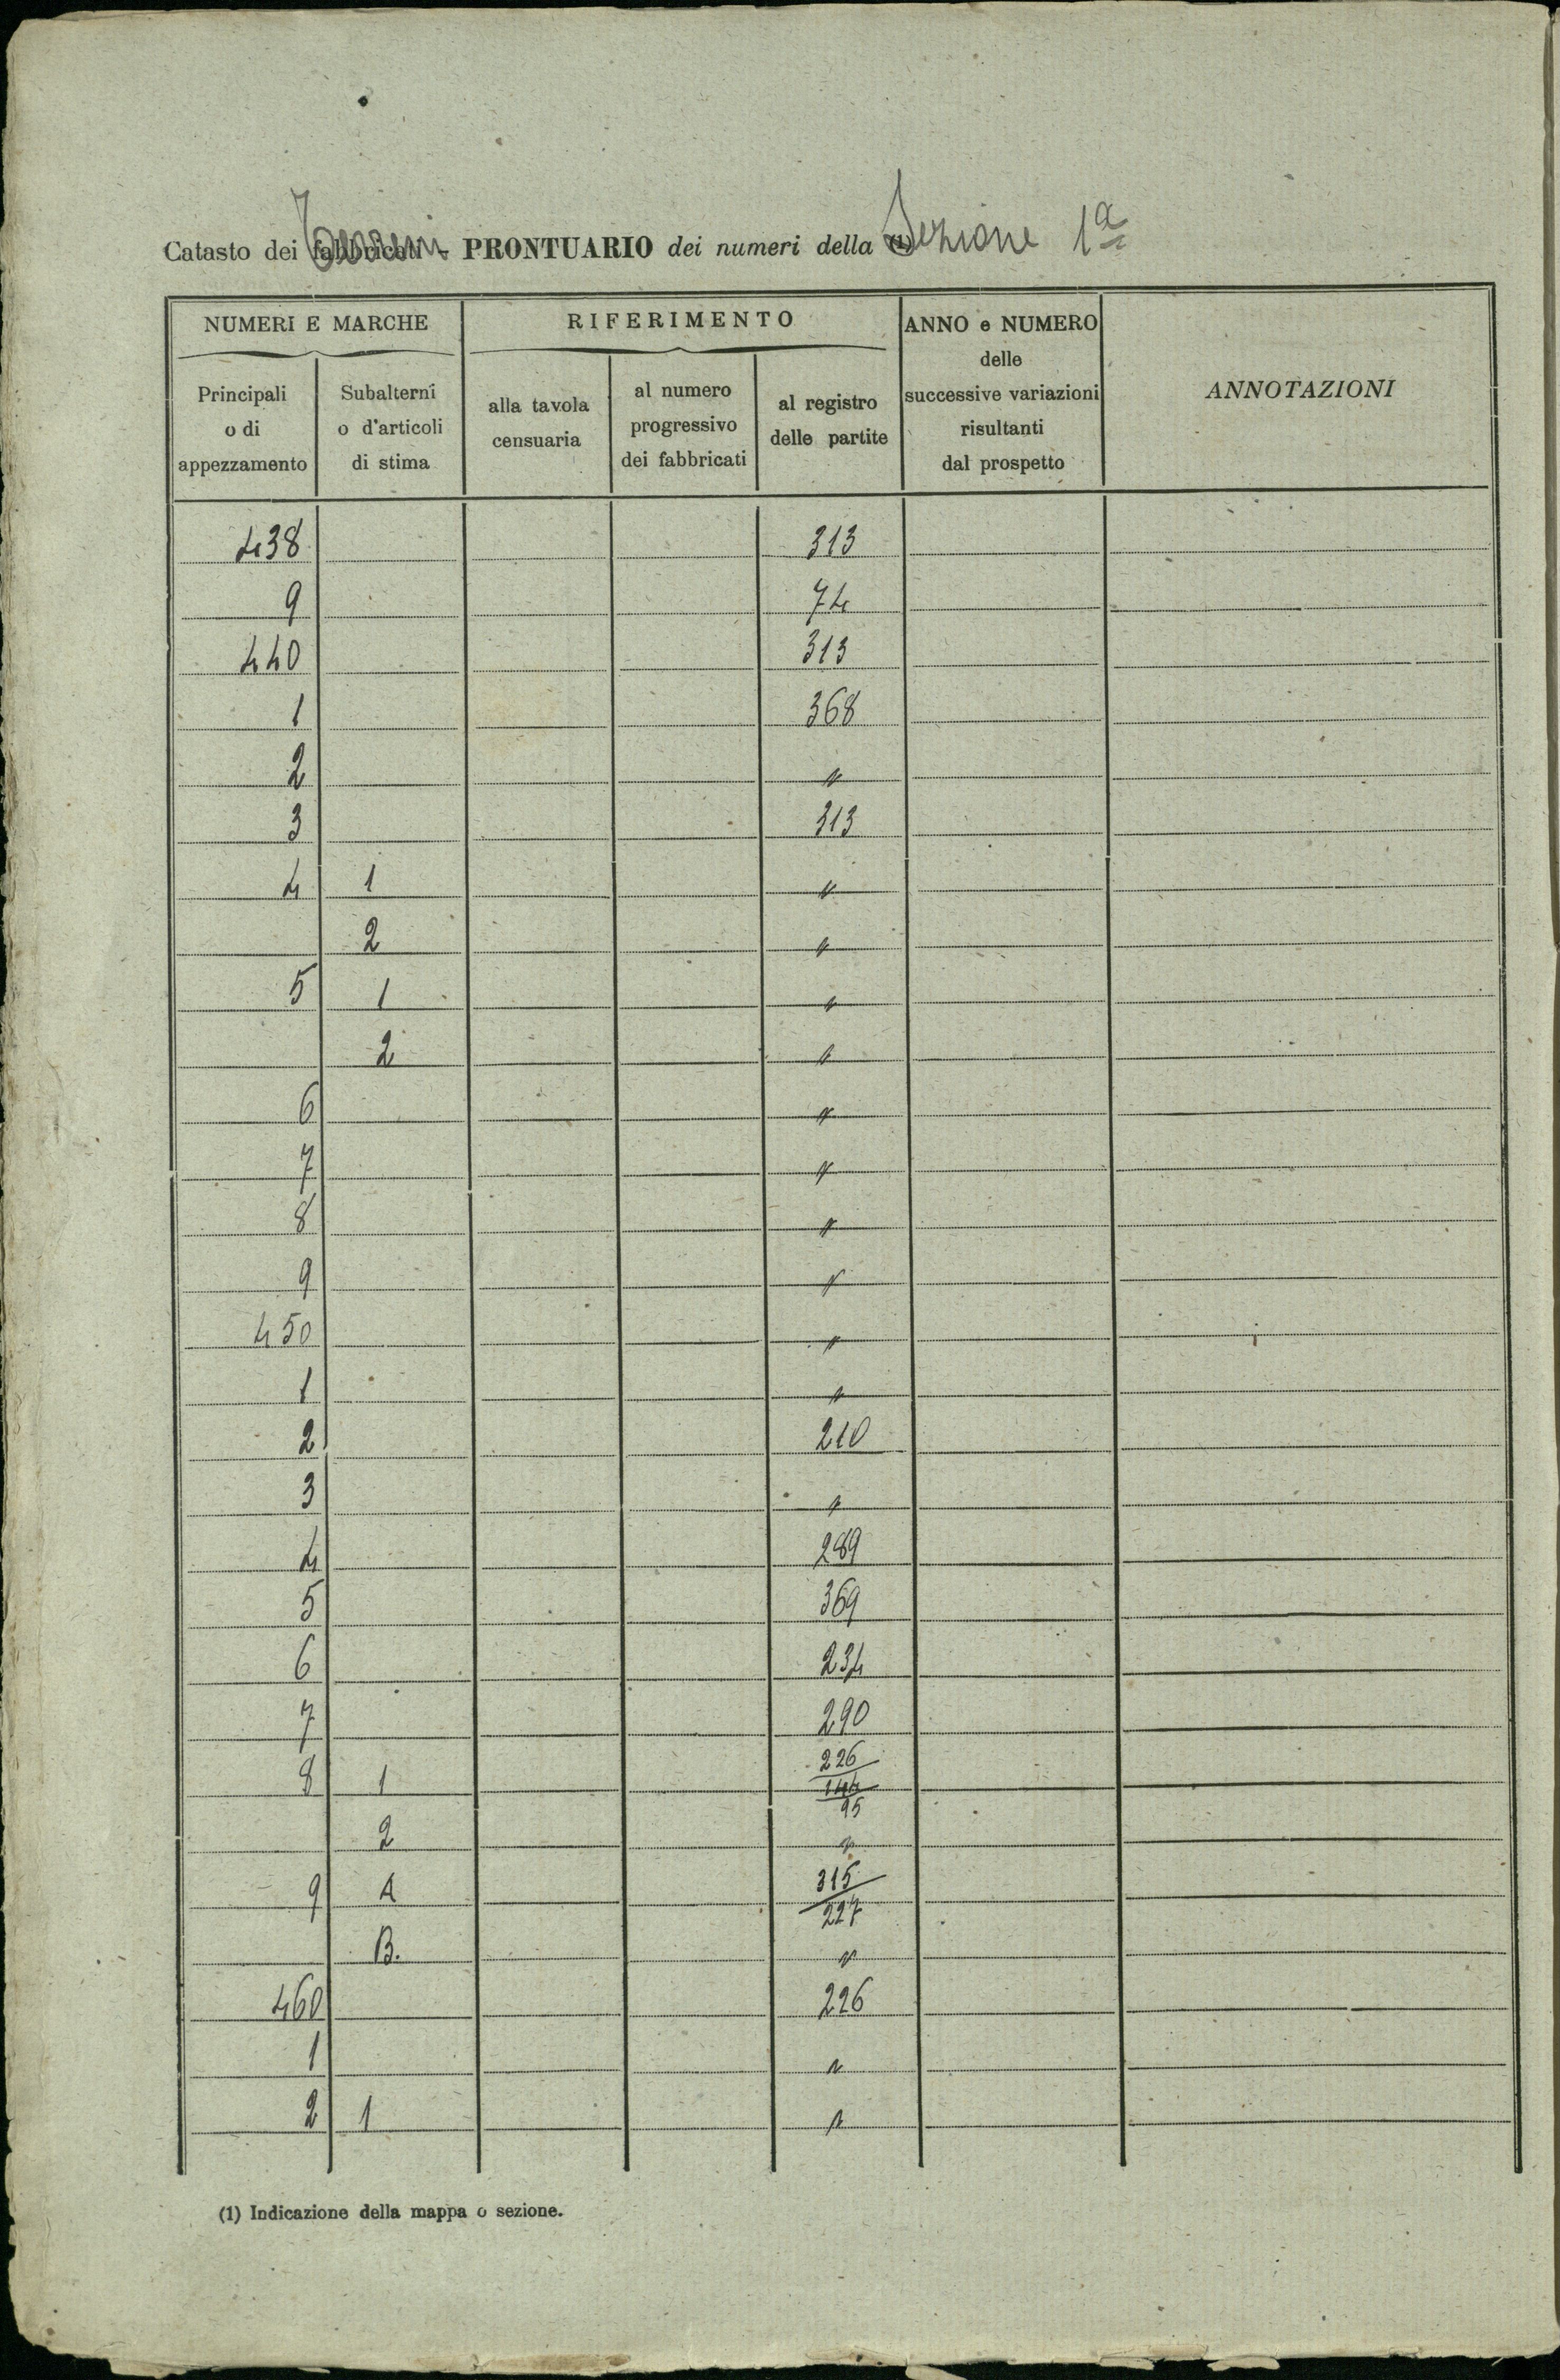 Catasto dei fabbricati - PRONTUARIO dei numeri della (1) Sezione 1ª
Terreni
NUMERI E MARCHE
RIFERIMENTO
ANNO e NUMERO
delle
successive variazioni
risultanti
dal prospetto
ANNOTAZIONI
Principali
o di
appezzamento
Subalterni
o d'articoli
di stima
alla tavola
censuaria
al numero
progressivo
dei fabbricati
al registro
delle partite
438 313
9 74
440 313
1 368
2 "
3 313
4 1 "
2 "
5 1 "
2 "
6 "
7 "
8 "
9 "
450 "
1 "
2 210
3 "
4 289
5 369
6 234
7 290
226
8 1 144
95
2 "
315
9 A
227
B. "
460 226
1 "
2 1 "
(1) Indicazione della mappa o sezione.